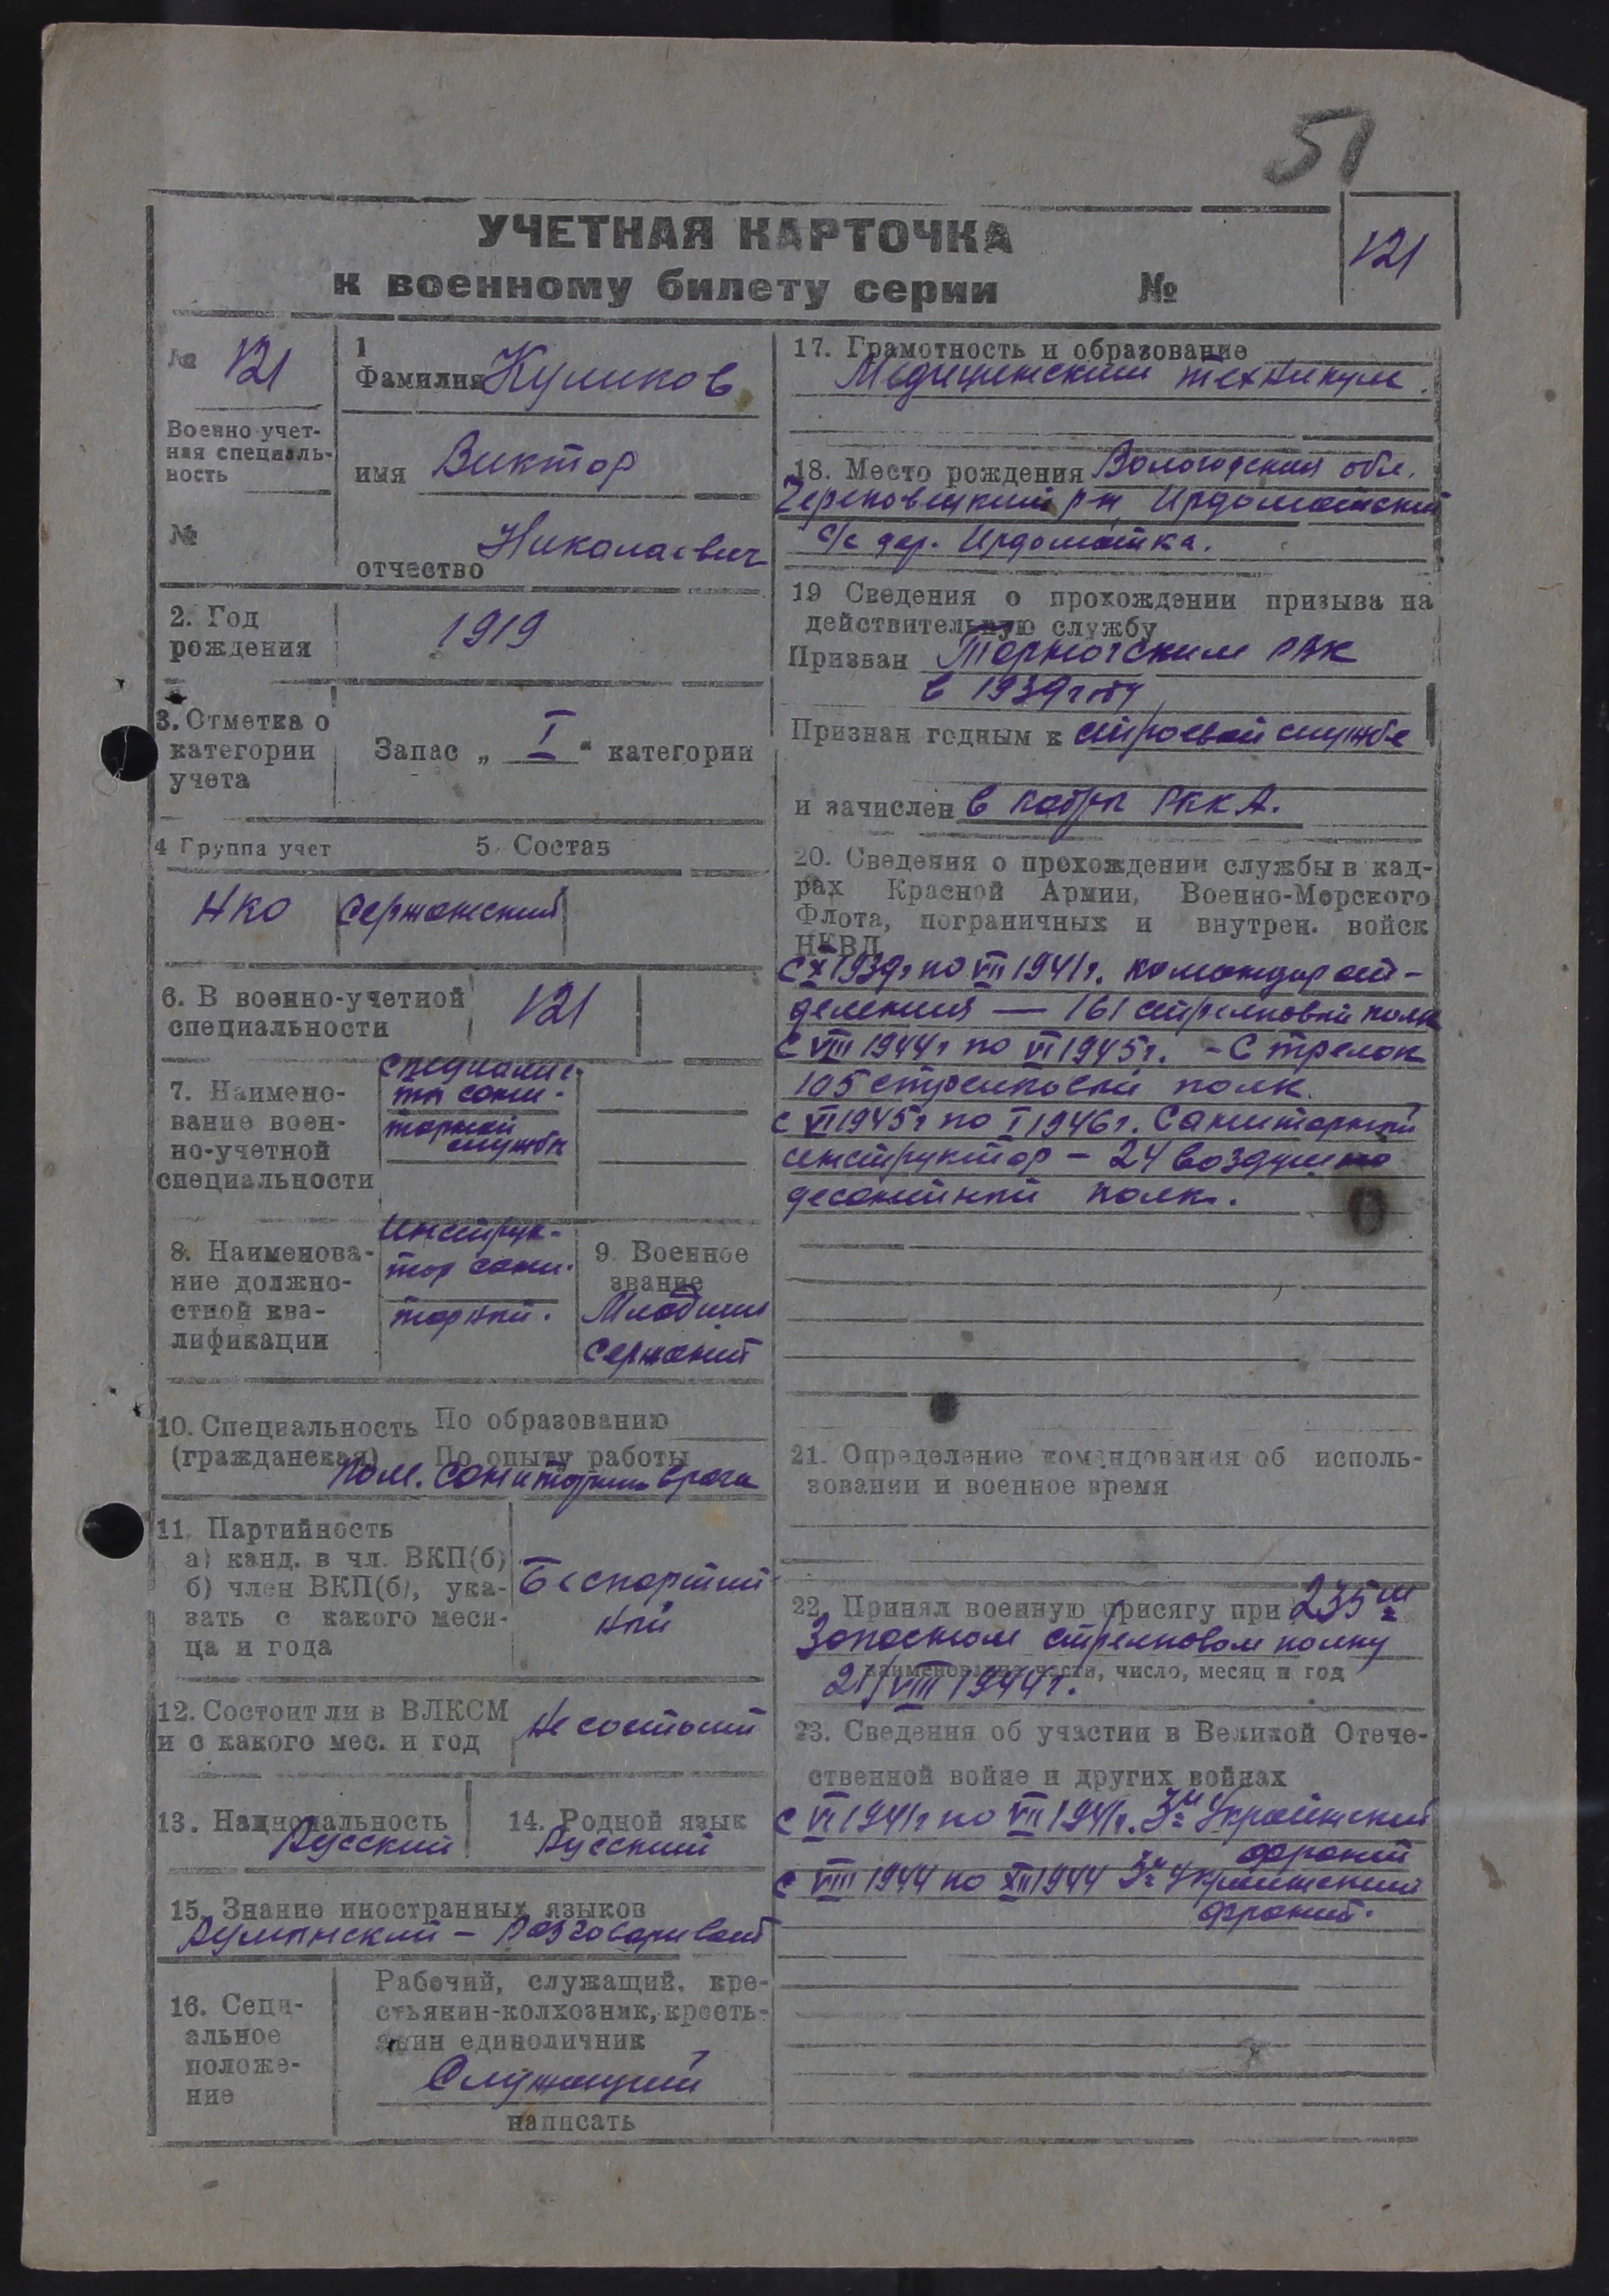 51
УЧЕТНАЯ КАРТОЧКА
к военному билету серии №
121
№ 121
Военно-учет-
ная специаль-
ность
№
1
Фамилия Куликов
имя Виктор
отчество Николаевич
2. Год
рождения
1919
3. Отметка о
категории
учета
Запас „ I “ категории
4 Группа учет
5. Состав
НКО
Сержанский
6. В военно-учетной
специальности
121
7. Наимено-
вание воен-
но-учетной
специальности
Специалис-
ты сани-
тарной
службы
8. Наименова-
ние должно-
стной ква-
лификации
Инструк-
тор сани-
тарный.
9. Военное
звание
Младший
Сержант
10. Специальность
(гражданская)
По образованию
По опыту работы
пом. санитарн врача
11. Партийность
а) канд. в чл. ВКП(б)
б) член ВКП(б), ука-
зать с какого меся-
ца и года
Беспартий-
ный
12. Состоит ли в ВЛКСМ
и с какого мес. и год
Не состоит
13. Национальность
Русский
14. Родной язык
Русский
15. Знание иностранных языков
Румынский – Разговаривает
16. Соци-
альное
положе-
ние
Рабочий, служащий, кре-
стьянин-колхозник, кресть-
янин единоличник
Служащий
написать
17. Грамотность и образование
Медицинский техникум.
18. Место рождения Вологодская обл.
Череповецкий р-н, Ирдоматский
с/с дер. Ирдоматка.
19 Сведения о прохождении призыва на
действительную службу
Призван Тарногским РВК
в 1939 году
Признан годным к строевой службе
и зачислен в кадры РККА.
20. Сведения о прохождении службы в кад-
рах Красной Армии, Военно-Морского
Флота, пограничных и внутрен. войск
НКВД
с X 1939г по VII 1941г. командир от-
деления — 161 стрелковый полк
с VIII 1944г по VI 1945г. - Стрелок
105 стрелковый полк.
с VI 1945г по I 1946г. Санитарный
инструктор – 24 воздушно
десантный полк.
21. Определение командования об исполь-
зовании и военное время
22. Принял военную присягу при 235м
Запасном стрелковом полку
наименование части, число, месяц и год
21/VIII 1944г.
23. Сведения об участии в Великой Отече-
ственной войне и других войнах
с VI 1941г по VII 1941г. 3й Украинский
фронт
с VIII 1944 по XII 1944 3й Украинский
фронт.